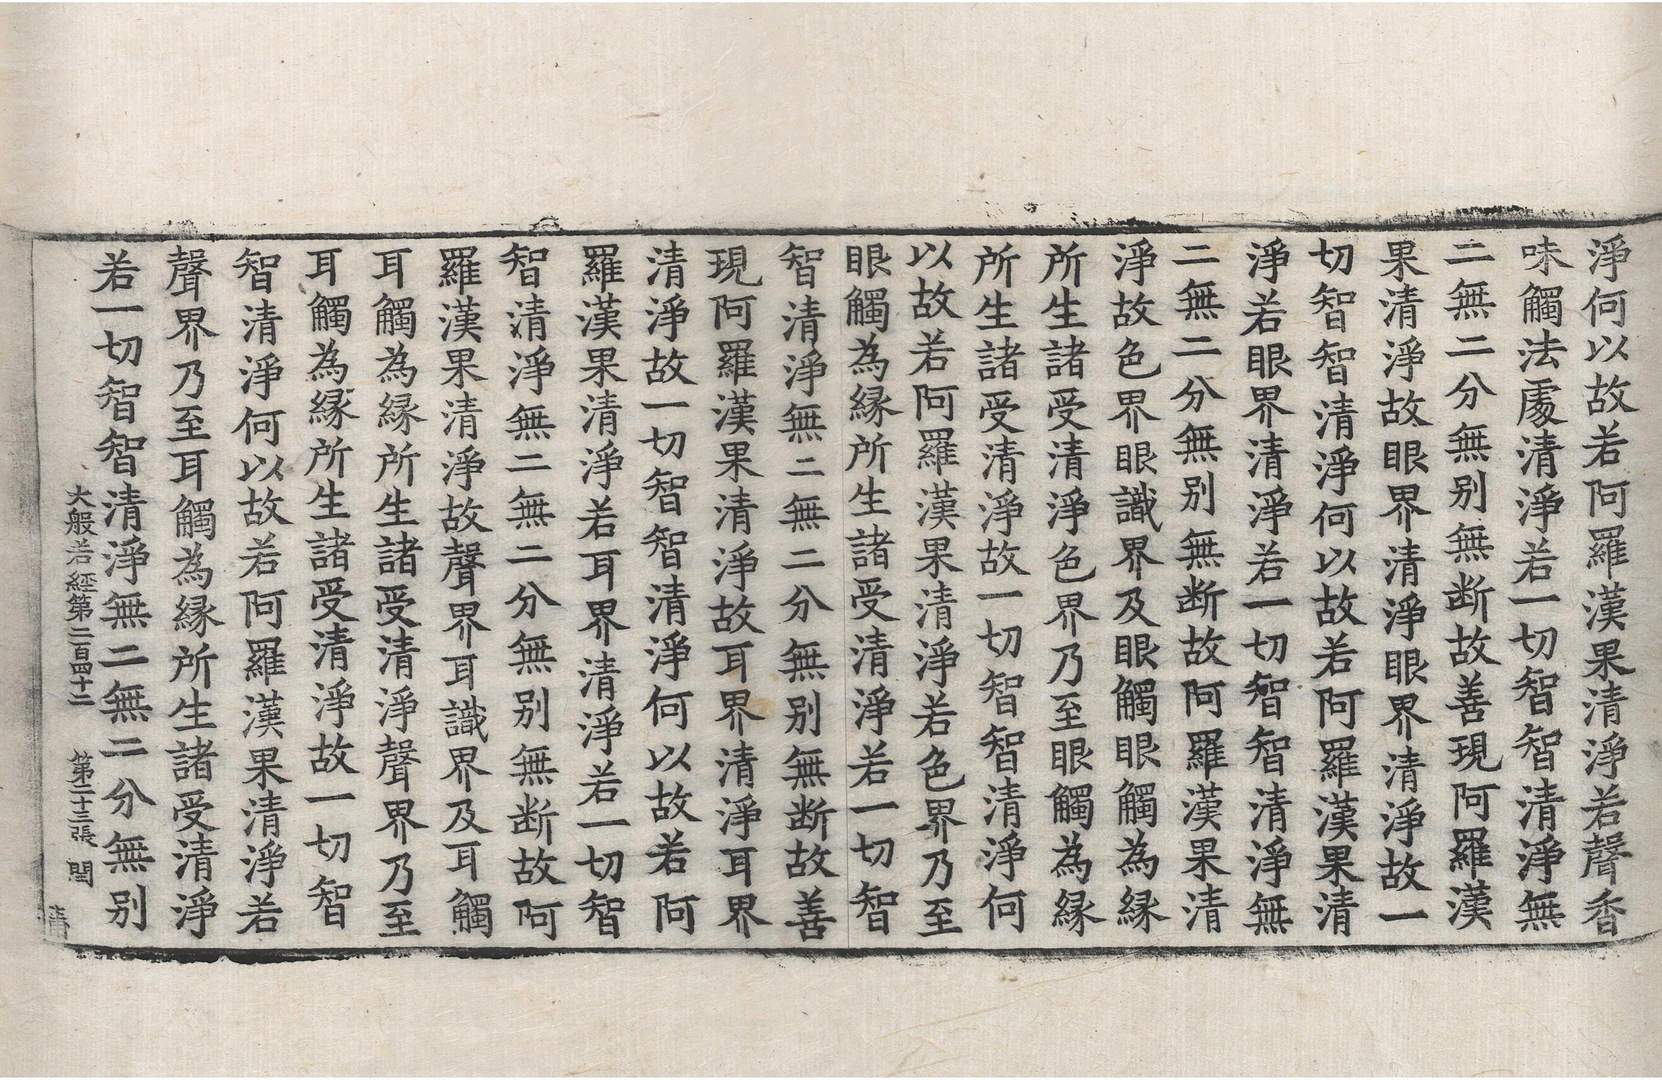 淨何以故若阿羅漢果清淨若聲香
味觸法處清淨若一切智智清淨無
二無二分無别無断故善現阿羅漢
果清淨故眼界清淨眼界清淨故一
切智智清淨何以故若阿羅漢果清
淨若眼界清淨若一切智智清淨無
二無二分無别無断故阿羅漢果清
淨故色界眼識界及眼觸眼觸為縁
所生諸受清淨色界乃至眼觸為縁
所生諸受清淨故一切智智清淨何
以故若阿羅漢果清淨若色界乃至
眼觸為縁所生諸受清淨若一切智
智清淨無二無二分無别無断故善
現阿羅漢果清淨故耳界清淨耳界
清淨故一切智智清淨何以故若阿
羅漢果清淨若耳界清淨若一切智
智清淨無二無二分無别無断故阿
羅漢果清淨故聲界耳識界及耳觸
耳觸為縁所生諸受清淨聲界乃至
耳觸為縁所生諸受清淨故一切智
智清淨何以故若阿羅漢果清淨若
聲界乃至耳觸為縁所生諸受清淨
若一切智智清淨無二無二分無别
大般若經第二百四十二 第二十三張 閏